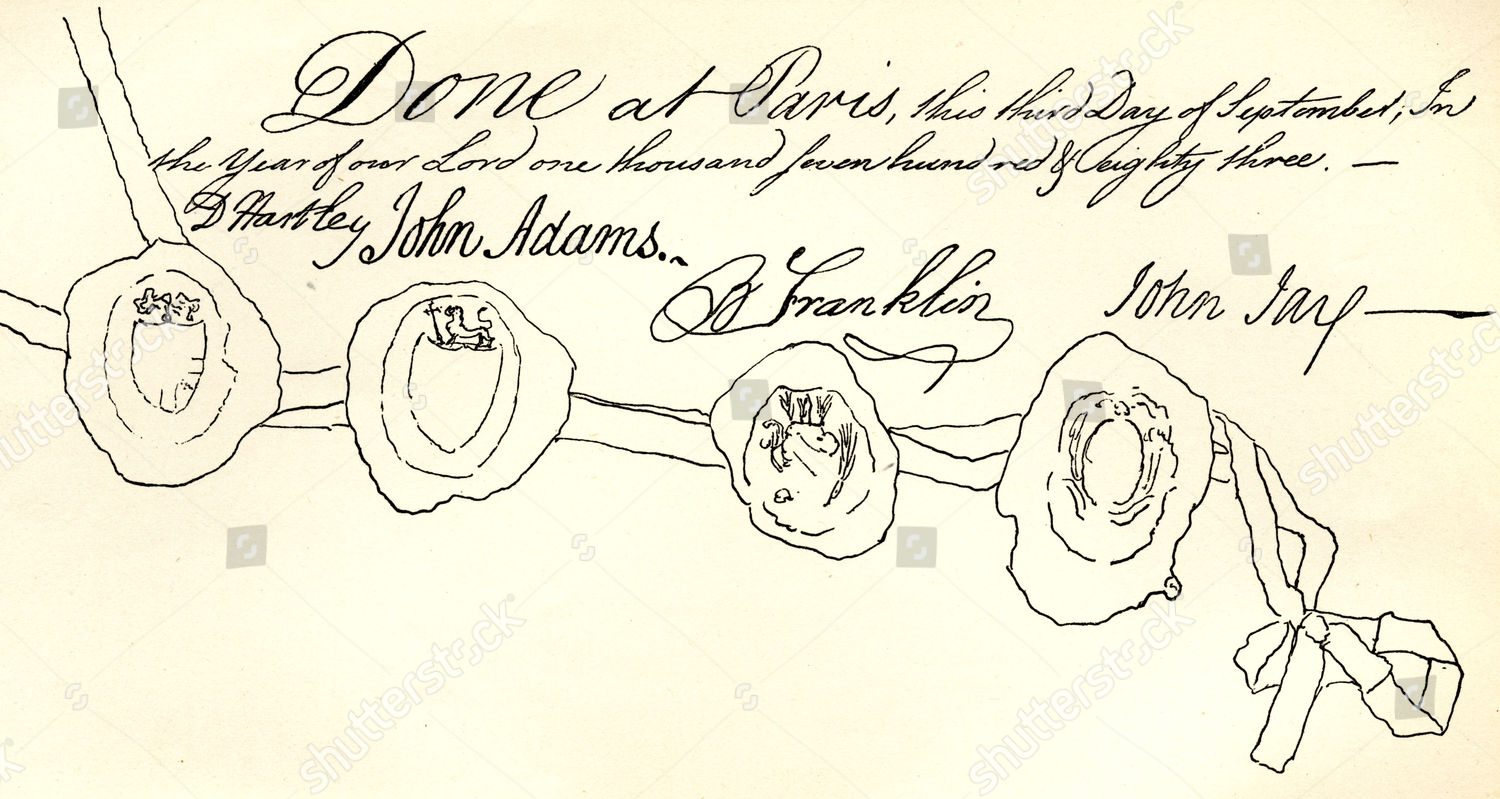 Done at Paris, this third Day of September, In
the Year of our Lord one thousand seven hundred & eighty three. —
D Hartley John Adams.
B Franklin John Jay —
shutterstock